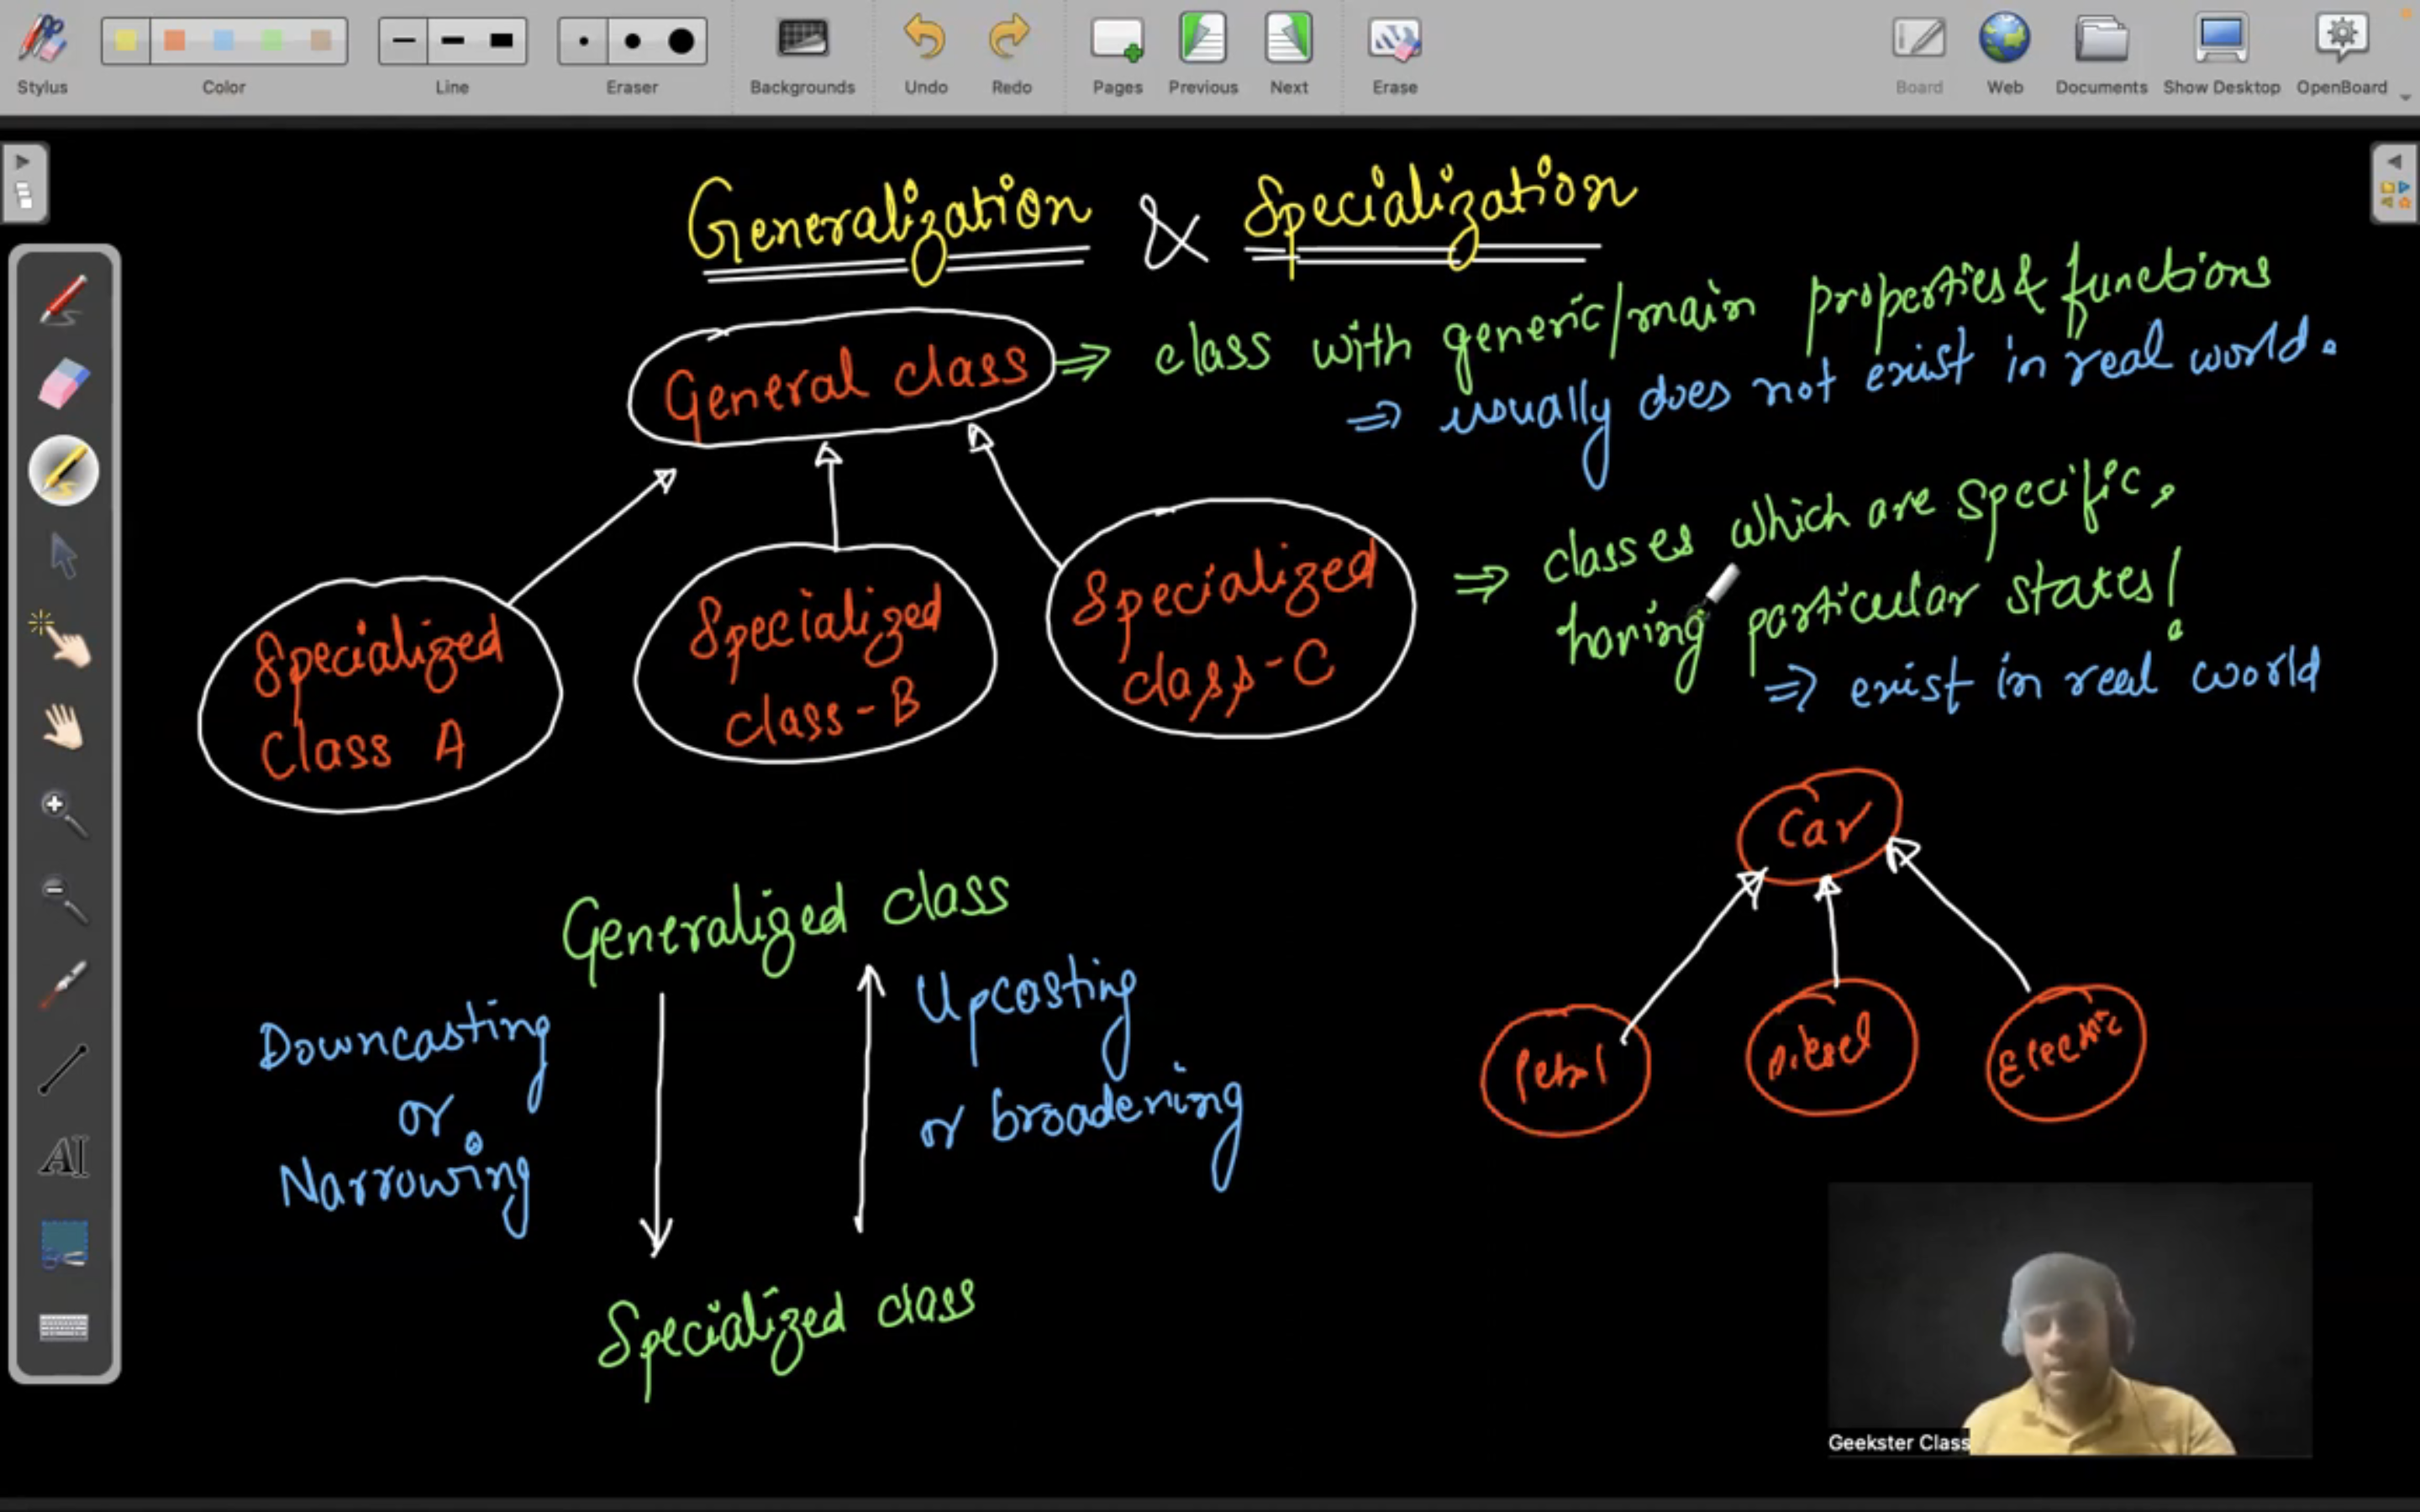 Stylus
Color
Line
Eraser
Backgrounds
Undo
Redo
Pages
Previous
Next
Erase
Board
Web
Documents
Show Desktop
OpenBoard
Generalization & Specialization
General class ⇒ class with generic/main properties & functions
⇒ usually does not exist in real world.
Specialized
Class A
Specialized
class-B
Specialized
class-C
⇒ classes which are specific,
having particular states!
⇒ exist in real world
Car
Petrol
Diesel
Electric
Generalized class
Downcasting
or
Narrowing
Upcasting
or broadening
Specialized class
AI
Geekster Class